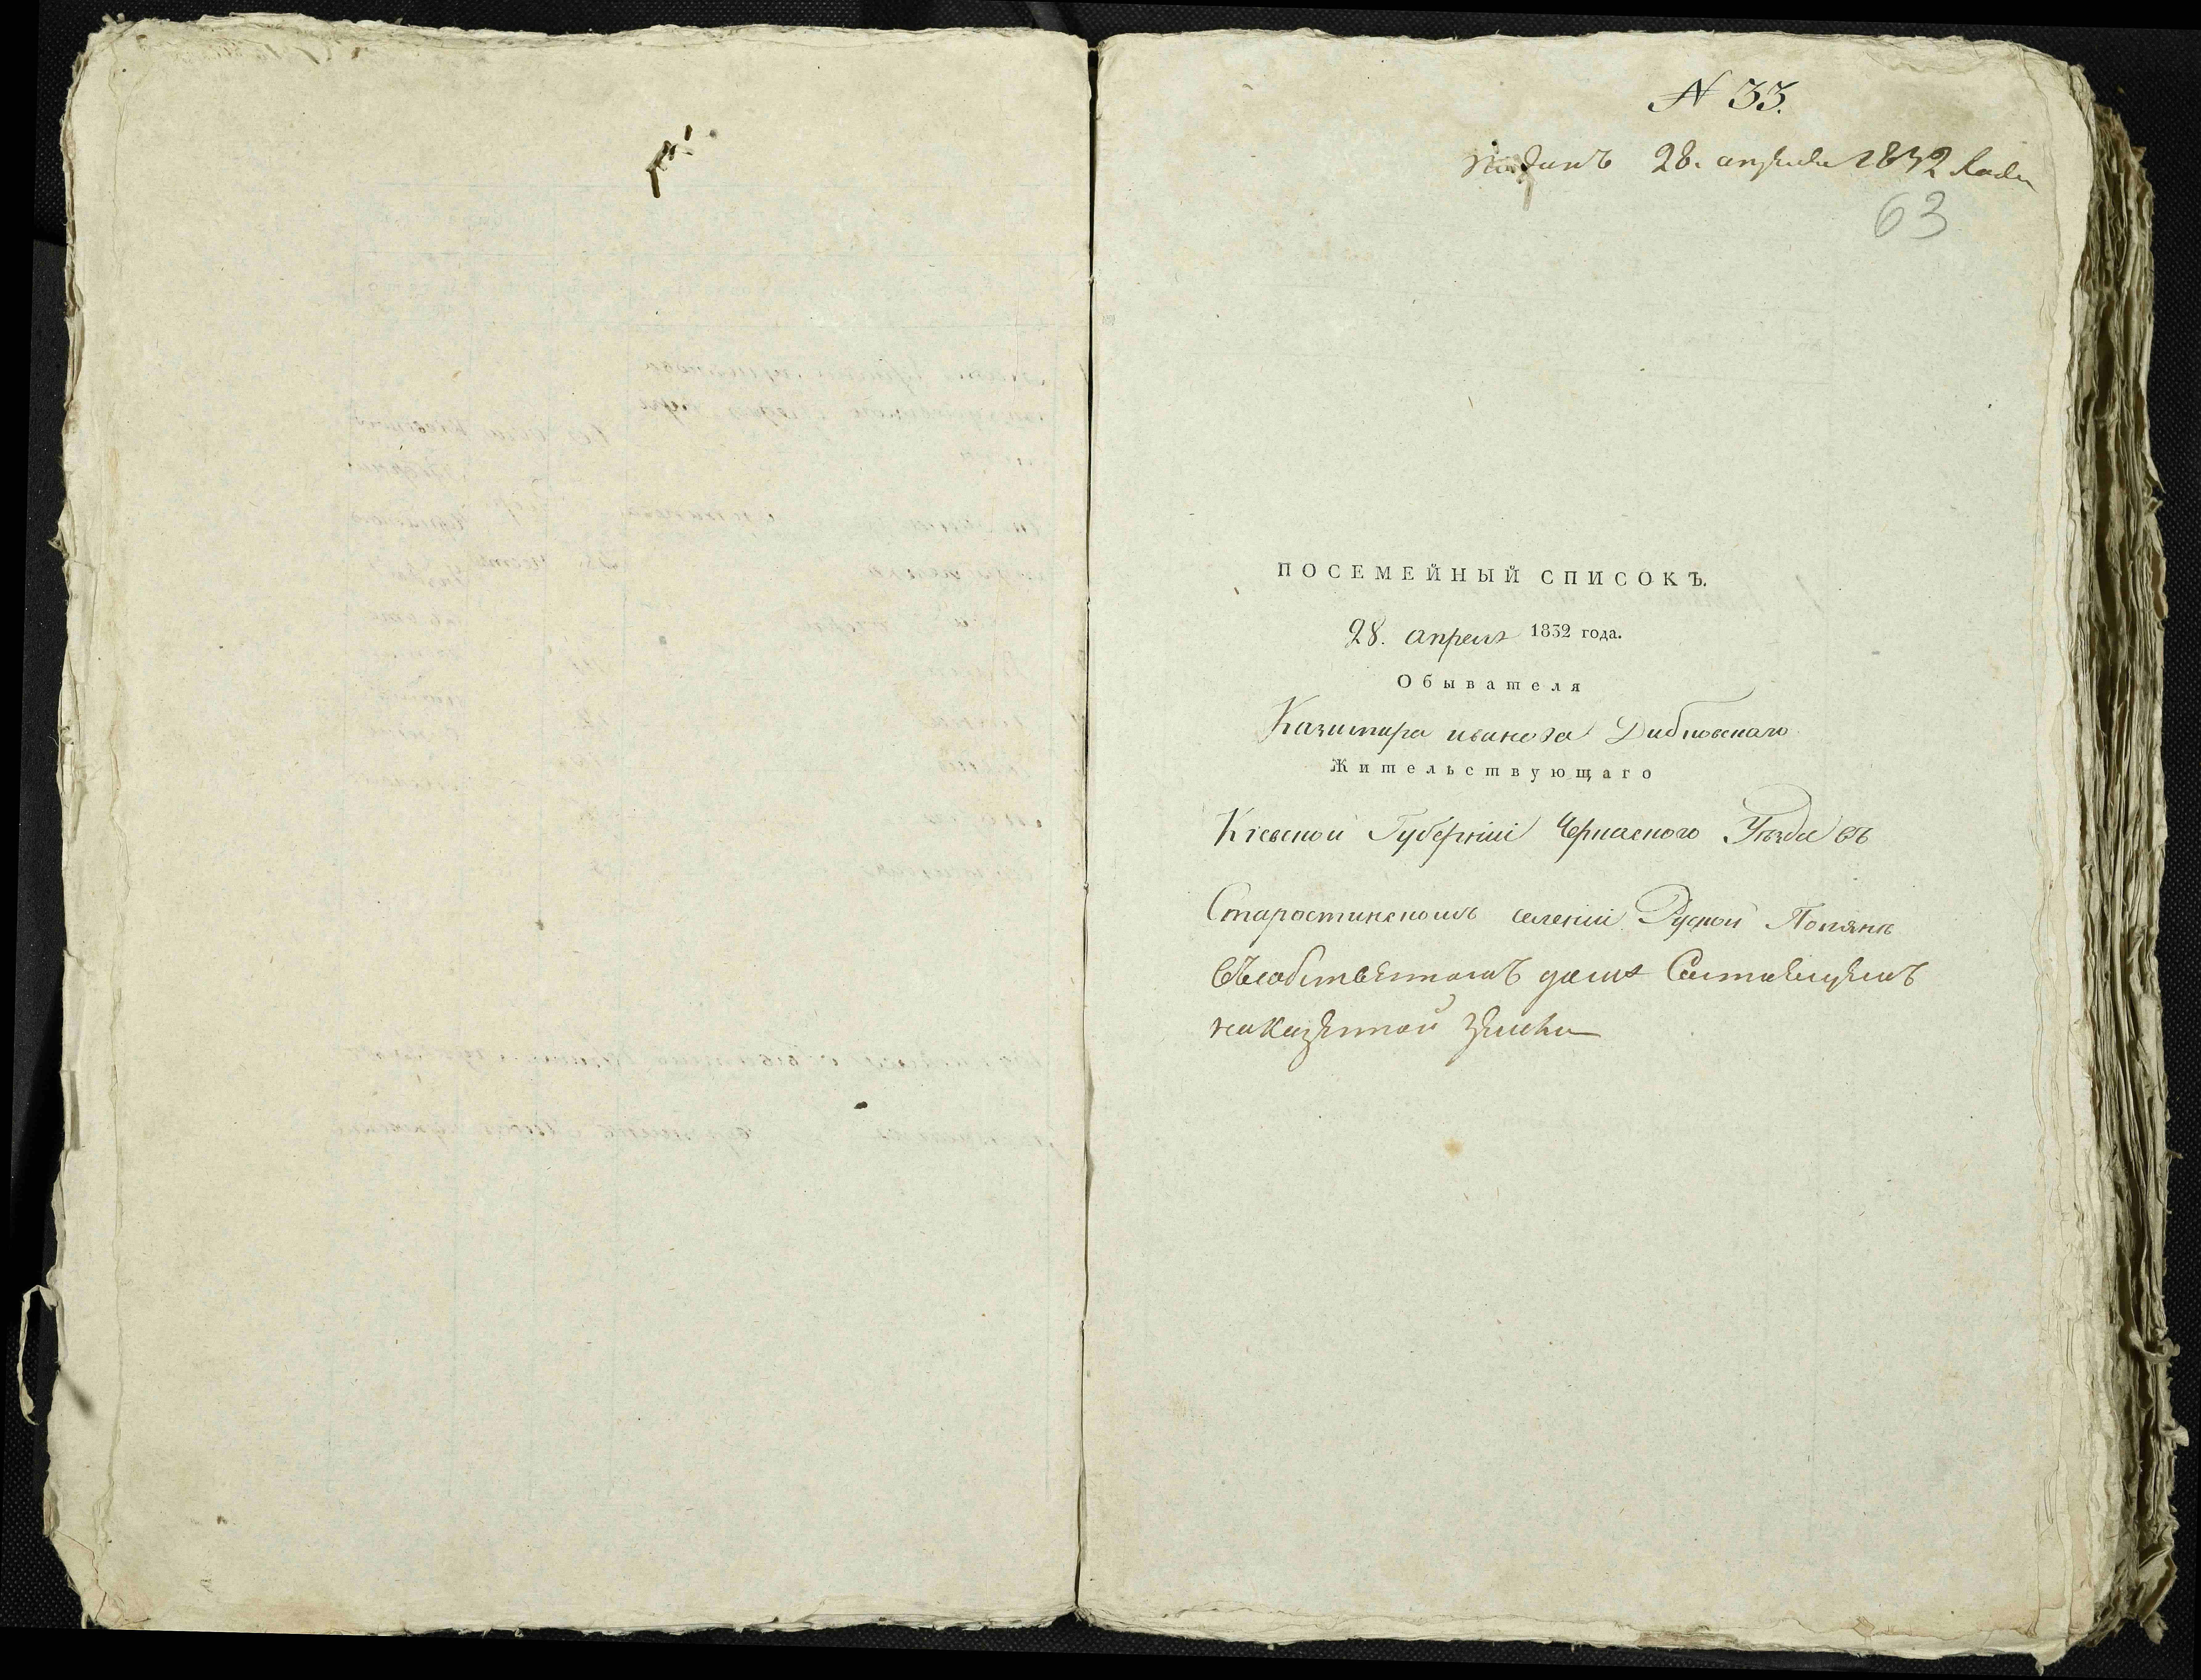 N 33.
Поданъ 28. апреля 1832 года
63
ПОСЕМЕЙНЫЙ СПИСОКЪ.
28. апреля 1832 года.
Обывателя
Казимира иванова
Жительствующаго
Кіевской Губерніи Черкаского Уезда въ
Старостинскомъ селеніи Руской Поляне
въ собственномъ доме Состоящемъ
на казенной земли